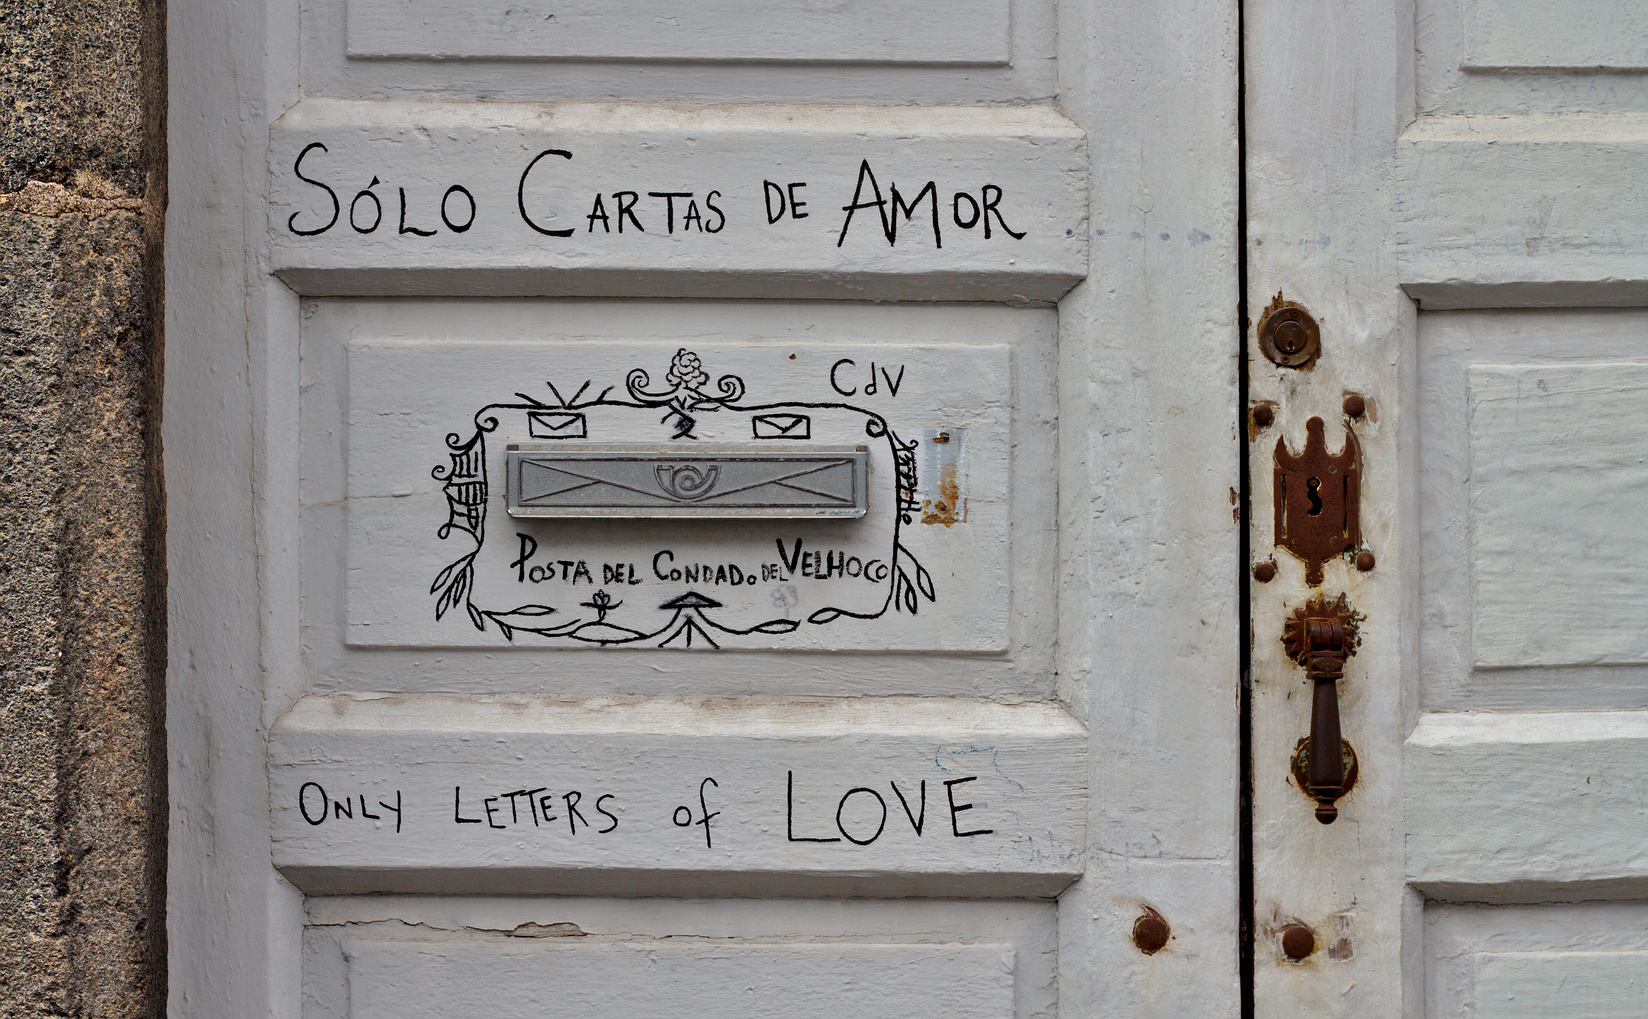 SÓLO CARTAS DE AMOR
CdV
POSTA DEL CONDADO DEL VELHOCO
ONLY LETTERS of LOVE